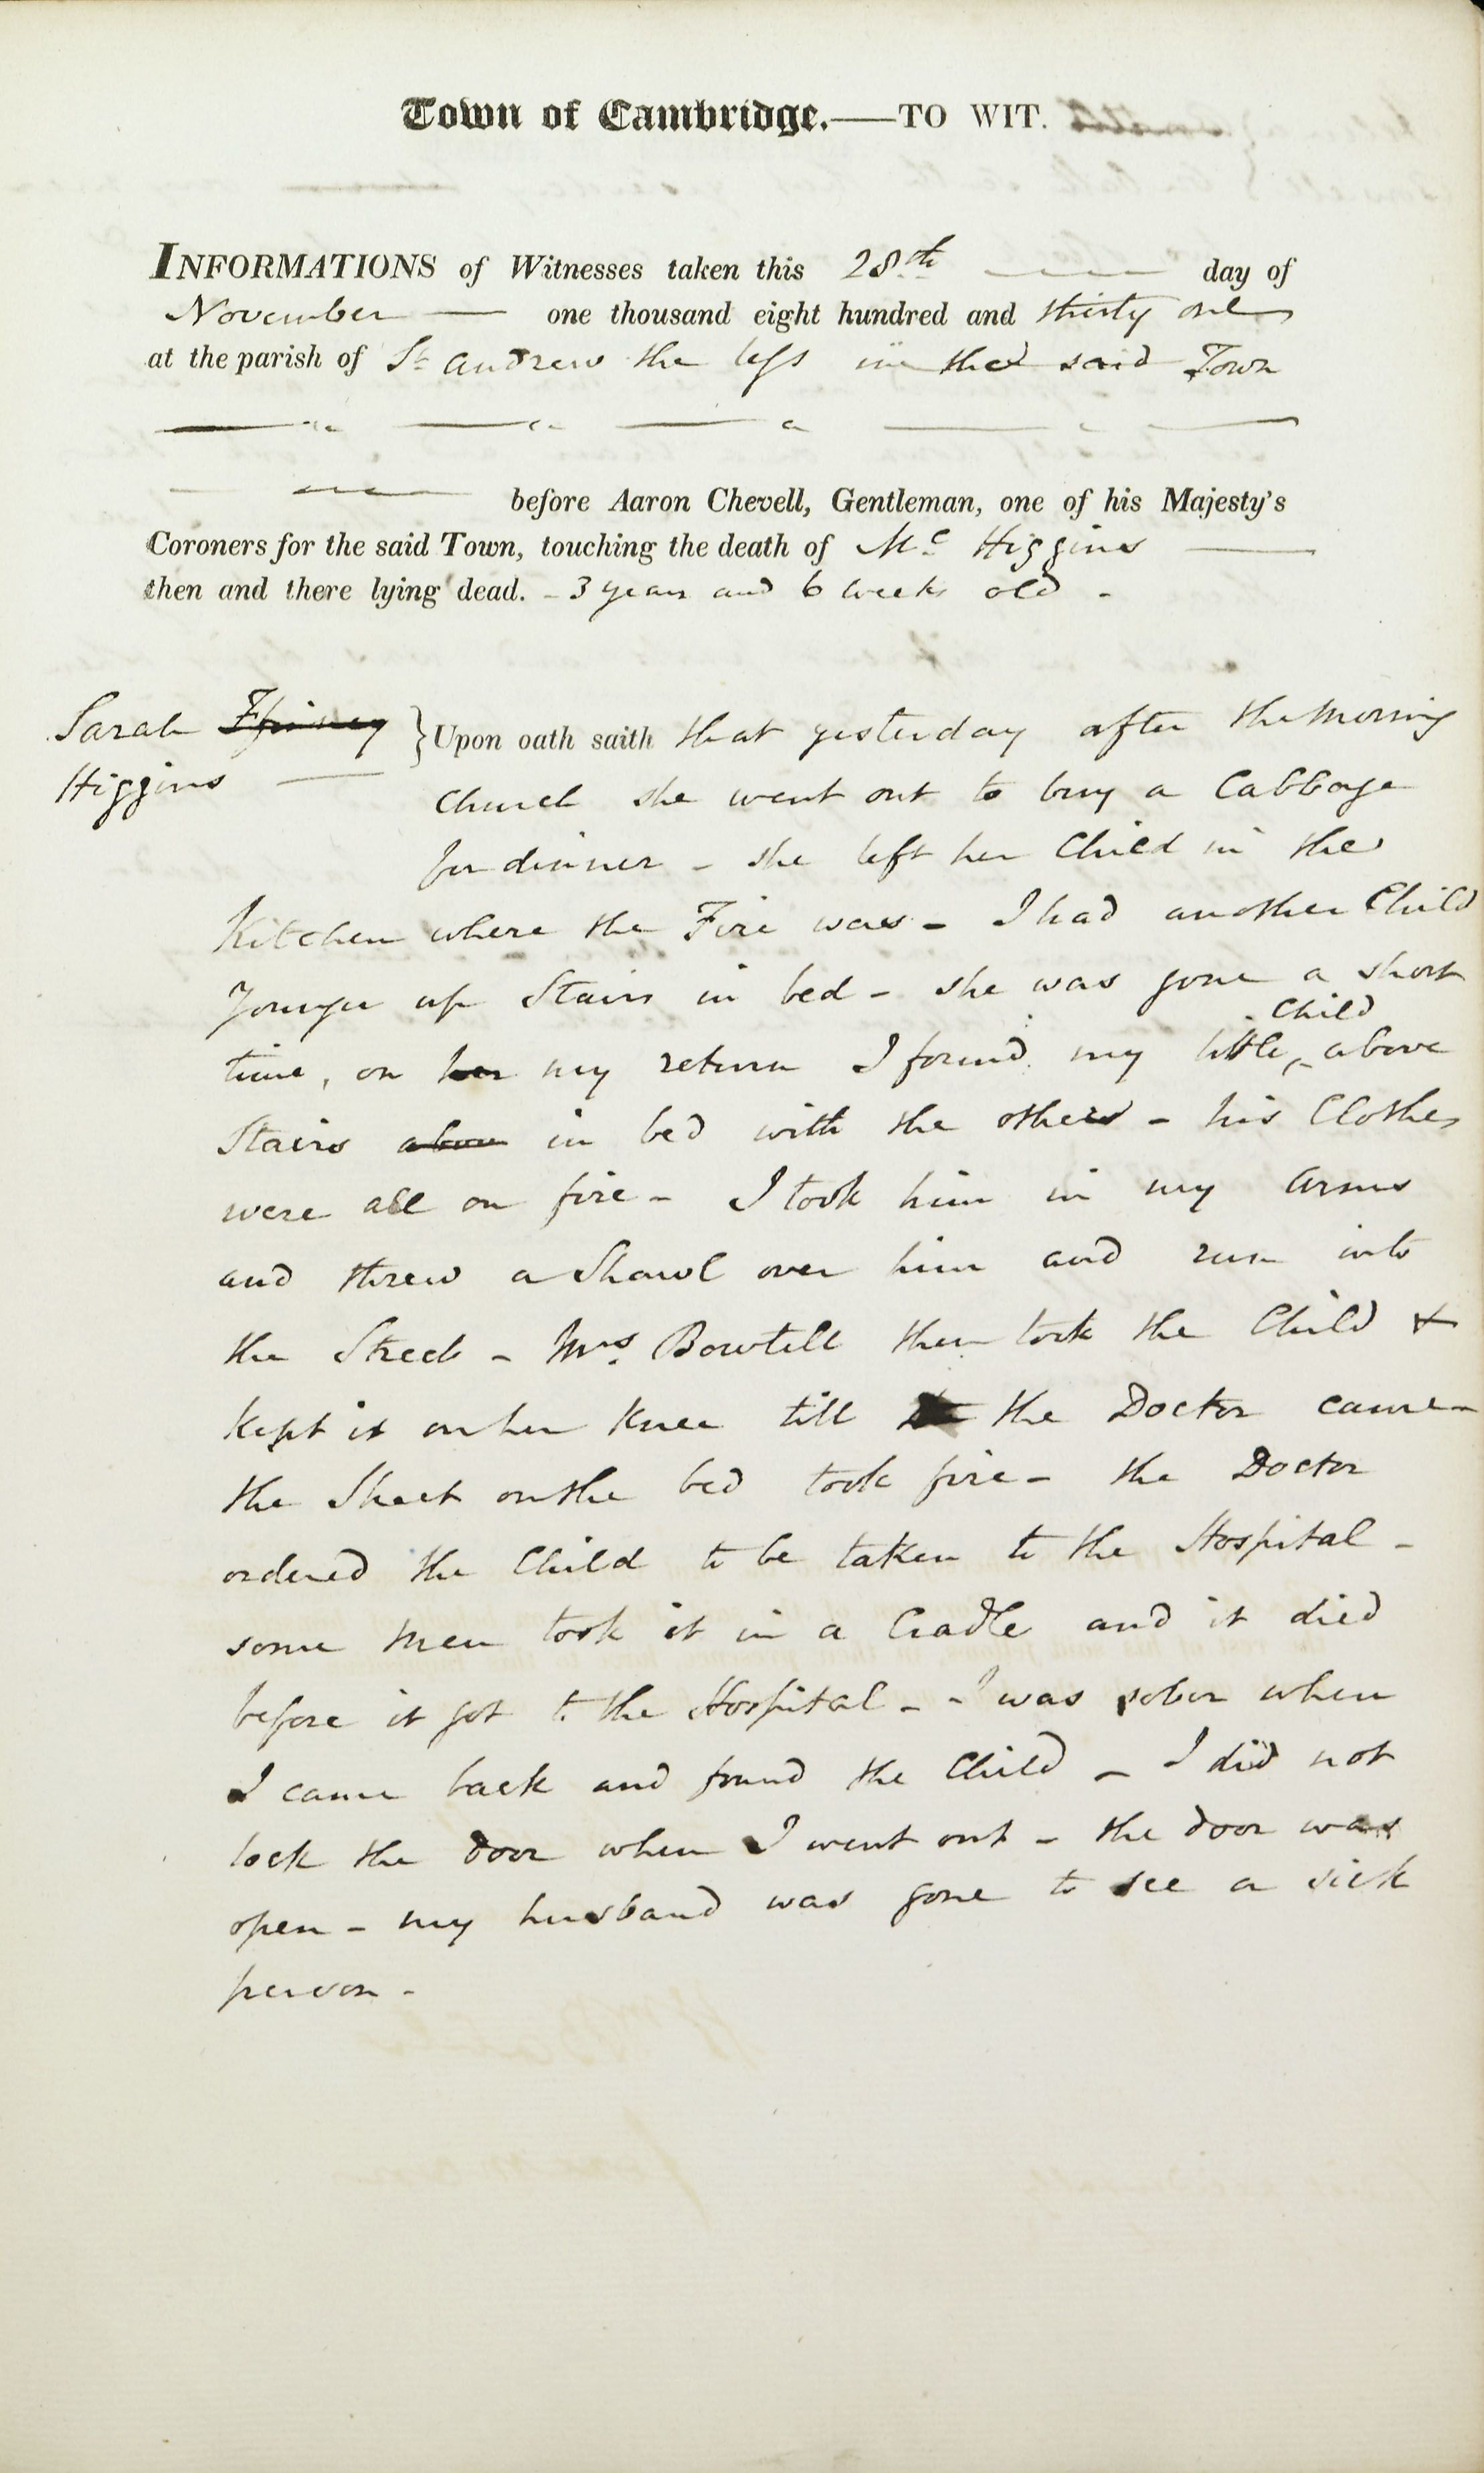 Town of Cambridge.—TO WIT.
INFORMATIONS of Witnesses taken this 28th day of
November — one thousand eight hundred and thirty one
at the parish of St Andrew the less in the said Town
before Aaron Chevell, Gentleman, one of his Majesty's
Coroners for the said Town, touching the death of Mc Higgins —
then and there lying dead. - 3 years and 6 weeks old -
Sarah
Higgins — } Upon oath saith that yesterday after the Morning
Church she went out to buy a Cabbage
for dinner - she left her Child in the
Kitchen where the Fire was - I had another Child
Younger up Stairs in bed - she was gone a short
time, on her my return I found my little Child above
Stairs above in bed with the others - his Clothes
were all on fire - I took him in my arms
and threw a Shawl over him and run into
the Street - Mrs. Bowtell then took the Child &
kept it on her Knee till the Doctor came -
the Sheet on the bed took fire - the Doctor
ordered the Child to be taken to the Hospital -
some Men took it in a Cradle and it died
before it got to the Hospital - I was sober when
I came back and found the Child - I did not
lock the door when I went out - the door was
open - my husband was gone to see a sick
person -